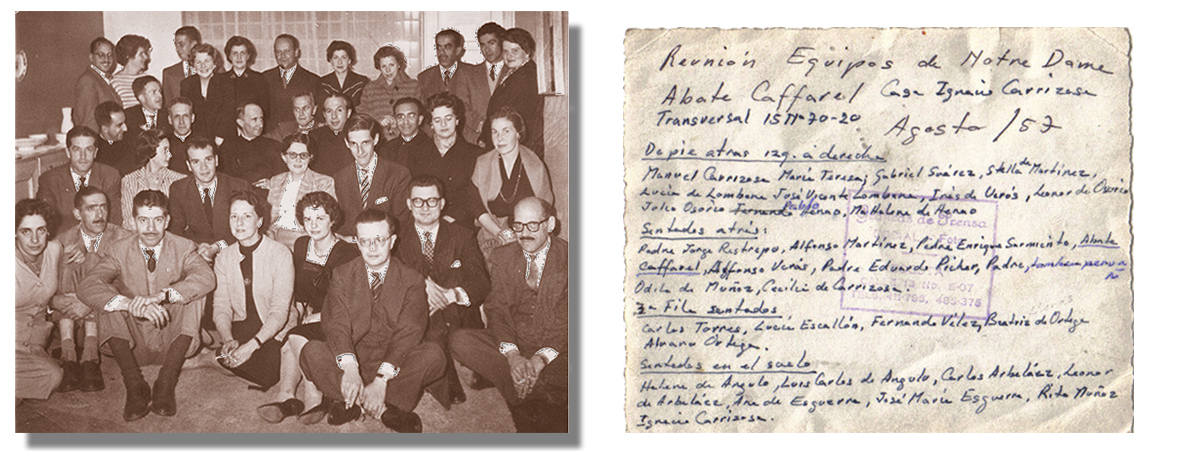 Reunión Equipos de Notre Dame
Abate Caffarel Casa Ignacio Carrizosa
Transversal 15 Nº 70-20
Agosto /57
De pie atras izq. a derecha
Manuel Carrizosa María Teresa, Gabriel Suárez, Stella de Martínez,
Lucía de Lombana José Vicente Lombana, Inés de Verós, Leonor de Osorio
Julio Osorio Fernando Pablo Henao, Magdalena de Henao
Sentados atrás:
Padre Jorge Restrepo, Alfonso Martínez, Padre Enrique Sarmiento, Abate
Caffarel, Alfonso Verós, Padre Eduardo Richer, Padre,
Odila de Muñoz, Cecilia de Carrizosa.
3a Fila sentados
Carlos Torres, Lucía Escallón, Fernando Vélez, Beatriz de Ortega
Alvaro Ortega.
Sentados en el suelo
Helena de Angulo, Luis Carlos de Angulo, Carlos Arbeláez, Leonor
de Arbeláez, Ana de Esguerra, José María Esguerra, Rita Muñoz
Ignacio Carrizosa.
de Prensa
No. 8-07
485-375